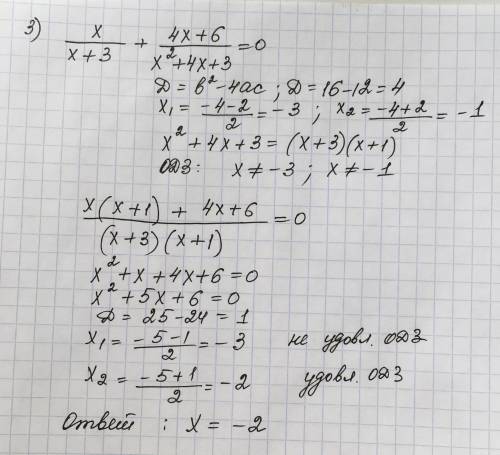 3) x/(x+3) + (4x+6)/(x²+4x+3) = 0
Д = в²-4ас ; Д = 16-12 = 4
x₁ = (-4-2)/2 = -3 ; x₂ = (-4+2)/2 = -1
x²+4x+3 = (x+3)(x+1)
ОДЗ: x ≠ -3 ; x ≠ -1
(x(x+1) + 4x+6)/((x+3)(x+1)) = 0
x²+x+4x+6 = 0
x²+5x+6 = 0
Д = 25-24 = 1
x₁ = (-5-1)/2 = -3 не удовл. ОДЗ
x₂ = (-5+1)/2 = -2 удовл. ОДЗ
Ответ : x = -2